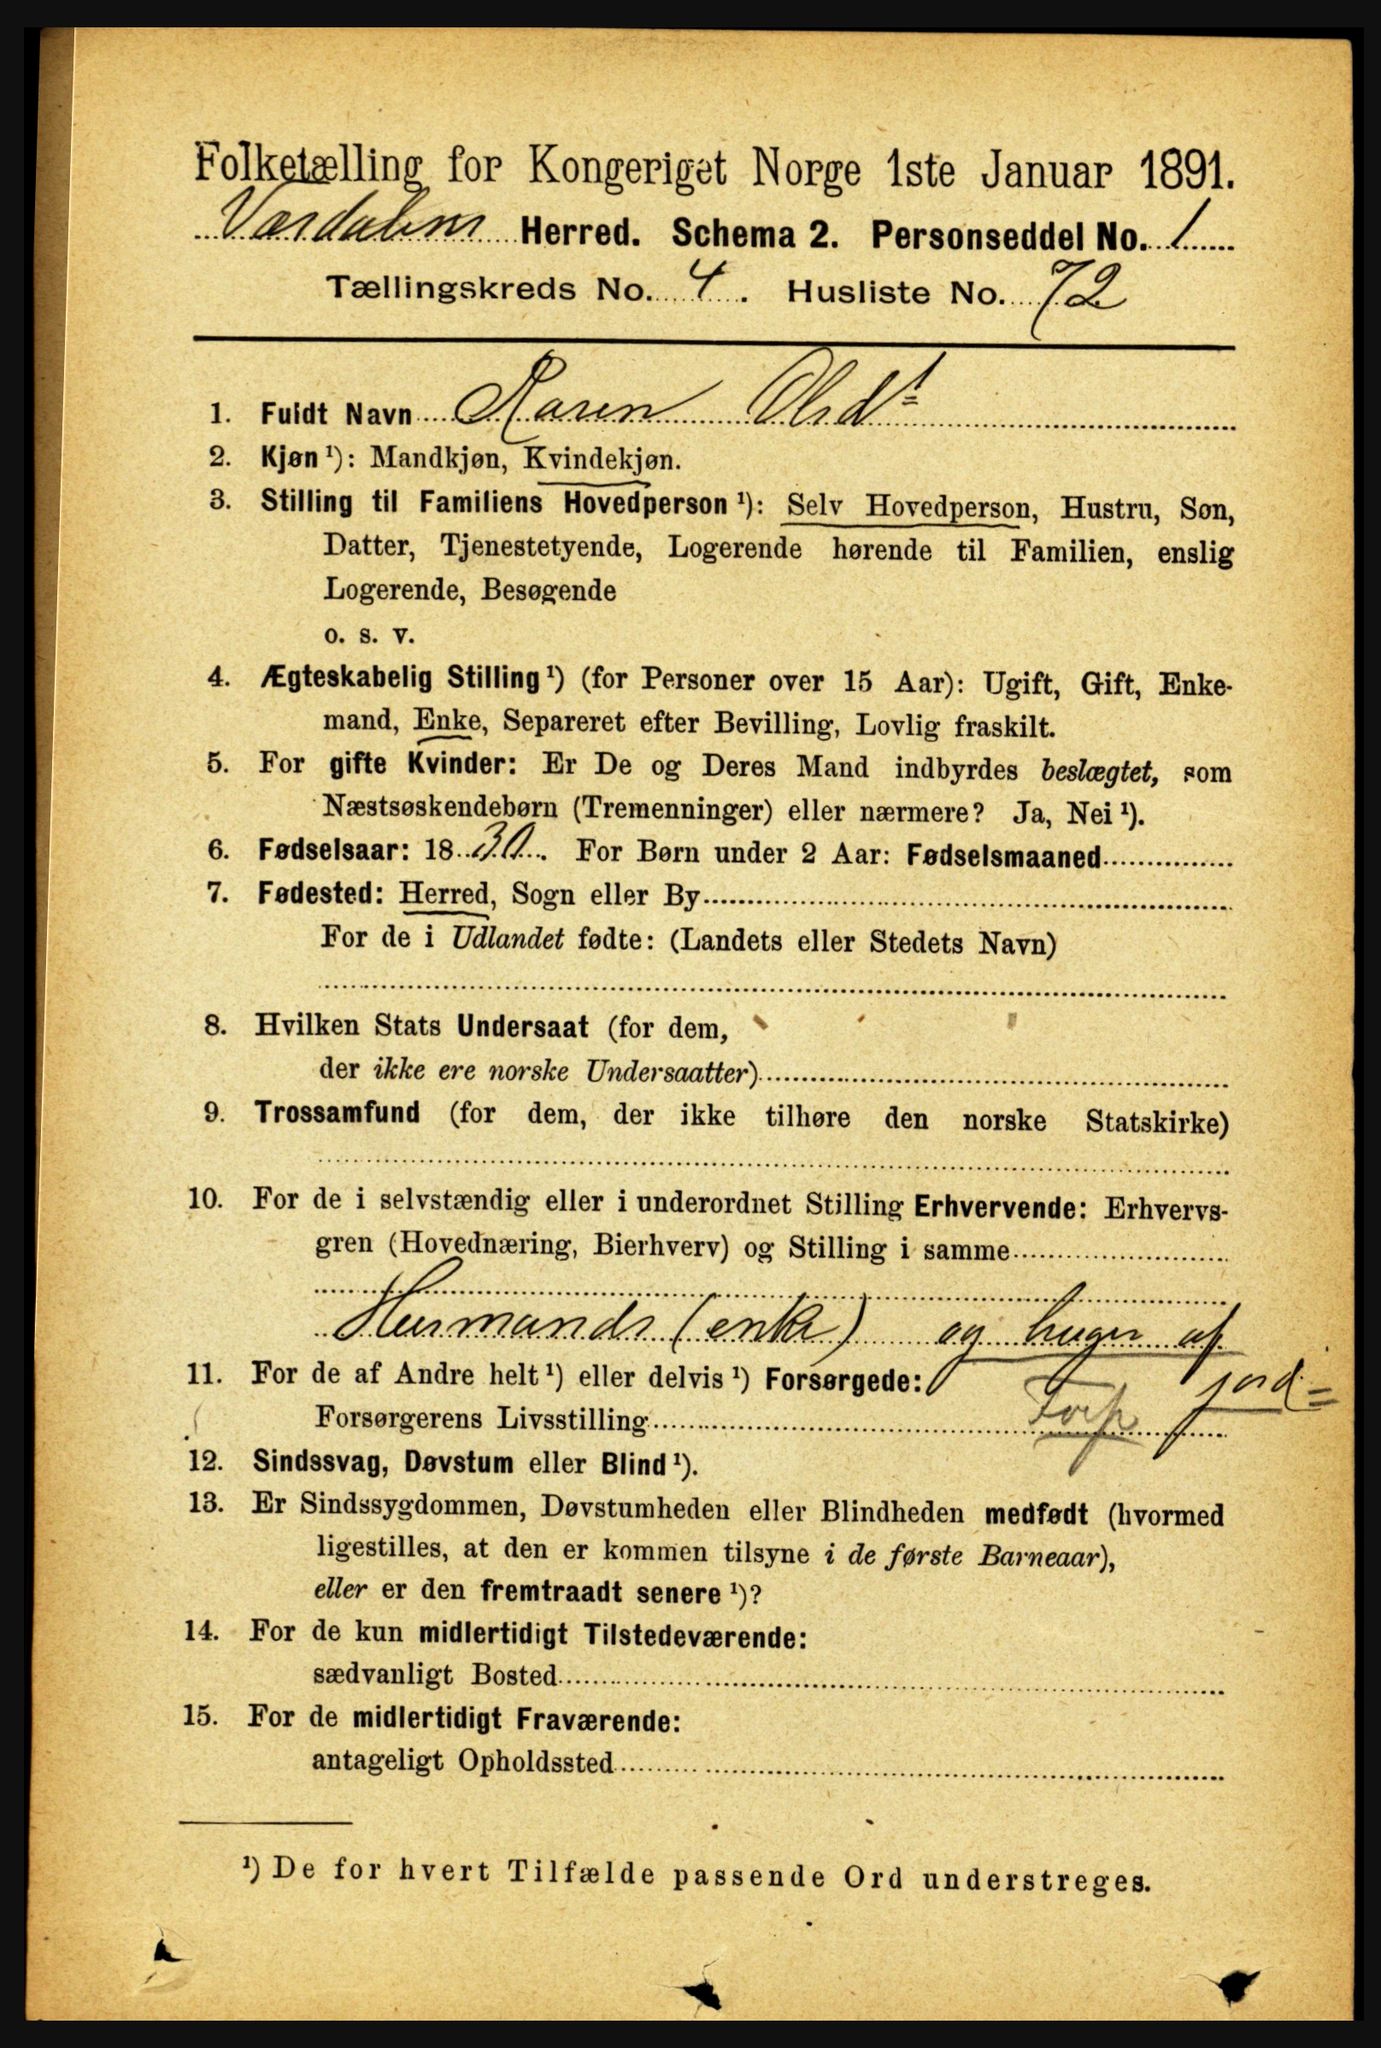 Folketælling for Kongeriget Norge 1ste Januar 1891.
Værdalens Herred. Schema 2. Personseddel No. 1
Tællingskreds No. 4. Husliste No. 72
1. Fuldt Navn Karen Olsdt
2. Kjøn ¹): Mandkjøn, Kvindekjøn.
3. Stilling til Familiens Hovedperson ¹): Selv Hovedperson, Hustru, Søn,
Datter, Tjenestetyende, Logerende hørende til Familien, enslig
Logerende, Besøgende
o. s. v.
4. Ægteskabelig Stilling ¹) (for Personer over 15 Aar): Ugift, Gift, Enke-
mand, Enke, Separeret efter Bevilling, Lovlig fraskilt.
5. For gifte Kvinder: Er De og Deres Mand indbyrdes beslægtet, som
Næstsøskendebørn (Tremenninger) eller nærmere? Ja, Nei ¹).
6. Fødselsaar: 1830. For Børn under 2 Aar: Fødselsmaaned
7. Fødested: Herred, Sogn eller By
For de i Udlandet fødte: (Landets eller Stedets Navn)
8. Hvilken Stats Undersaat (for dem,
der ikke ere norske Undersaatter)
9. Trossamfund (for dem, der ikke tilhøre den norske Statskirke)
10. For de i selvstændig eller i underordnet Stilling Erhvervende: Erhvervs-
gren (Hovednæring, Bierhverv) og Stilling i samme
Husmands (enke) og bruger af
jord
11. For de af Andre helt ¹) eller delvis ¹) Forsørgede:
Forsørgerens Livsstilling
12. Sindssvag, Døvstum eller Blind ¹).
13. Er Sindssygdommen, Døvstumheden eller Blindheden medfødt (hvormed
ligestilles, at den er kommen tilsyne i de første Barneaar),
eller er den fremtraadt senere ¹)?
14. For de kun midlertidigt Tilstedeværende:
sædvanligt Bosted
15. For de midlertidigt Fraværende:
antageligt Opholdssted
¹) De for hvert Tilfælde passende Ord understreges.